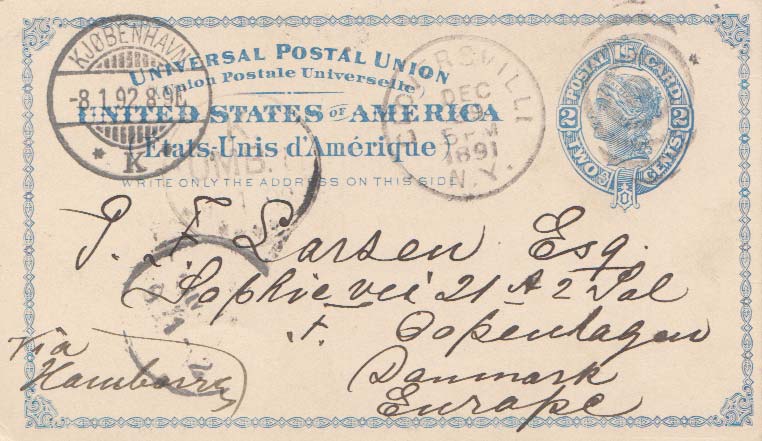 UNIVERSAL POSTAL UNION
Union Postale Universelle
UNITED STATES OF AMERICA
(États-Unis d'Amérique)
WRITE ONLY THE ADDRESS ON THIS SIDE
KJØBENHAVN
-8.1.92.8-9E
K
DEC
5 PM
1891
N.Y.
POSTAL CARD
U S
2 2
TWO CENTS
P. F. Larsen Esq.
Sophievei 21 A 2 Sal
Copenhagen
Danmark
Europe
Via
Hambourg